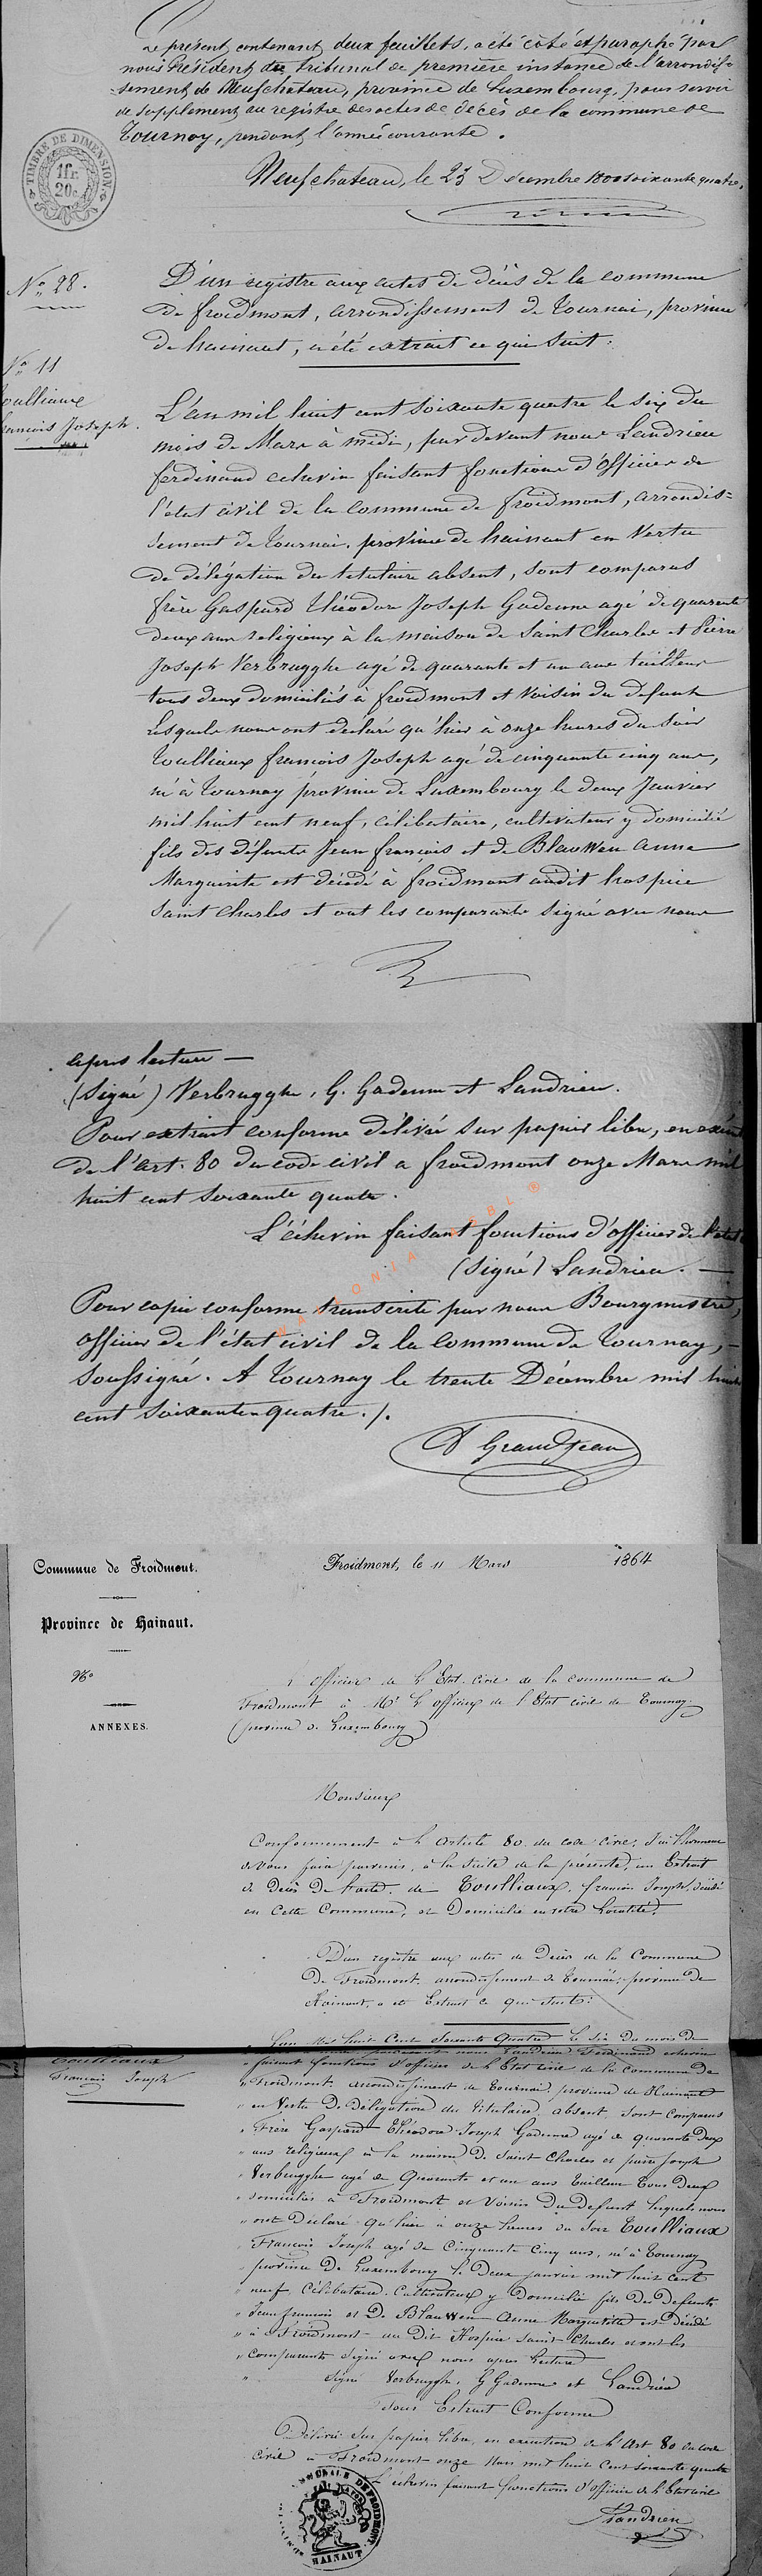 Le présent contenant deux feuillets, a été coté et paraphé par
nous Président du Tribunal de première instance de l'arrondis-
sement de Neufchâteau, province de Luxembourg, pour servir
de supplément au registre des actes de décès de la commune de
Tournay, pendant l'année courante.
TIMBRE DE DIMENSION
1 fr.
20 c.
Neufchateau, le 23 Decembre 1800 soixante quatre.
N° 28.
D'un registre aux actes de décès de la commune
de froidmont, arrondissement de Tournai, province
de hainaut, a été extrait ce qui suit:
N° 11
oulliaux
rançois Joseph.
L'an mil huit cent soixante quatre le six du
mois de Mars à midi, par devant nous Landrieu
ferdinand echevin faisant fonctions d'Officier de
l'état civil de la commune de froidmont, arrondis=
sement de Tournai, province de hainaut en vertu
de délégation du titulaire absent, sont comparus
frère Gaspard Théodore Joseph Gadenne agé de quarante
deux ans religieux à la maison de Saint Charles et Pierre
Joseph Verbrugghe agé de quarante et un ans tailleur
tous deux domiciliés à froidmont et voisin du defunt
Lesquels nous ont déclaré qu'hier à onze heures du soir
Toulliaux françois Joseph agé de cinquante cinq ans,
né à Tournay province de Luxembourg le deux Janvier
mil huit cent neuf, célibataire, cultivateur y domicilié
fils des défunts Jean françois et de Blauwen Anne
Marguerite est décédé à froidmont audit hospice
Saint Charles et ont les comparants signé avec nous
après lecture —
(Signé) Verbrugghe, G. Gadenne et Landrieu.
Pour extrait conforme délivré sur papier libre, en exécu
de l'art. 80 du code civil a froidmont onze Mars mil
huit cent soixante quatre.
L'échevin faisant fonctions d'officier de l'état
(Signé) Landrieu. —
Pour copie conforme transcrite par nous Bourgmestre,
officier de l'état civil de la commune de Tournay, —
soussigné. A Tournay le trente Décembre mil huit
cent soixante quatre ./.
Grandjean
Commune de Froidmont.
Froidmont, le 11 Mars 1864
Province de Hainaut.
N°
ANNEXES.
L'officier de l'Etat civil de la commune de
Froidmont à Mr L'officier de l'Etat civil de Tournay
(province de Luxembourg)
Monsieur
Conformement à l'article 80 du code civil, J'ai l'honneur
de vous faire parvenir, à la suite de la présente, un Extrait
de Décès de l'acte de Toulliaux, françois Joseph, décédé
en cette Commune, et Domicilié en votre Localité.
D'un registre aux actes de Décès de la Commune
De Froidmont, arrondissement de Tournai, province De
Hainaut, a été Extrait ce qui suit:
Toulliaux
François Joseph
L'an Mil huit Cent Soixante Quatre le six Du mois de
nous Landrieu Ferdinand echevin
" faisant fonctions d'officier de l'Etat civil de la commune De
" Froidmont arrondissement de Tournai province de Hainaut
" en Vertu De Délégation du titulaire absent, sont comparus
" Frère Gaspard Théodore Joseph Gadenne agé de quarante deux
" ans religieux à la maison de Saint Charles et pierre Joseph
" Verbrugghe agé de Quarante et un ans tailleur tous Deux
" domiciliés à Froidmont et Voisins Du Defunt lesquels nous
" ont Declaré Qu'hier à onze heures du soir Toulliaux
" François Joseph agé de Cinquante Cinq ans, né à Tournay
" province De Luxembourg le Deux janvier mil huit cent
" neuf, Célibataire, Cultivateur y Domicilié fils Des Defunts
" Jean francois et De Blauwen Anne Marguerite est Décédé
" à Froidmont au Dit Hospice Saint Charles et ont les
" Comparants signé avec nous apres Lecture
" signé Verbrugghe, G Gadenne et Landrieu
Pour Extrait Conforme
Délivré sur papier libre, en execution de l'Art 80 du code
civil à Froidmont onze Mars mil huit Cent soixante quatre
L'échevin faisant fonctions d'officier de l'Etat civil
Landrieu
HAINAUT